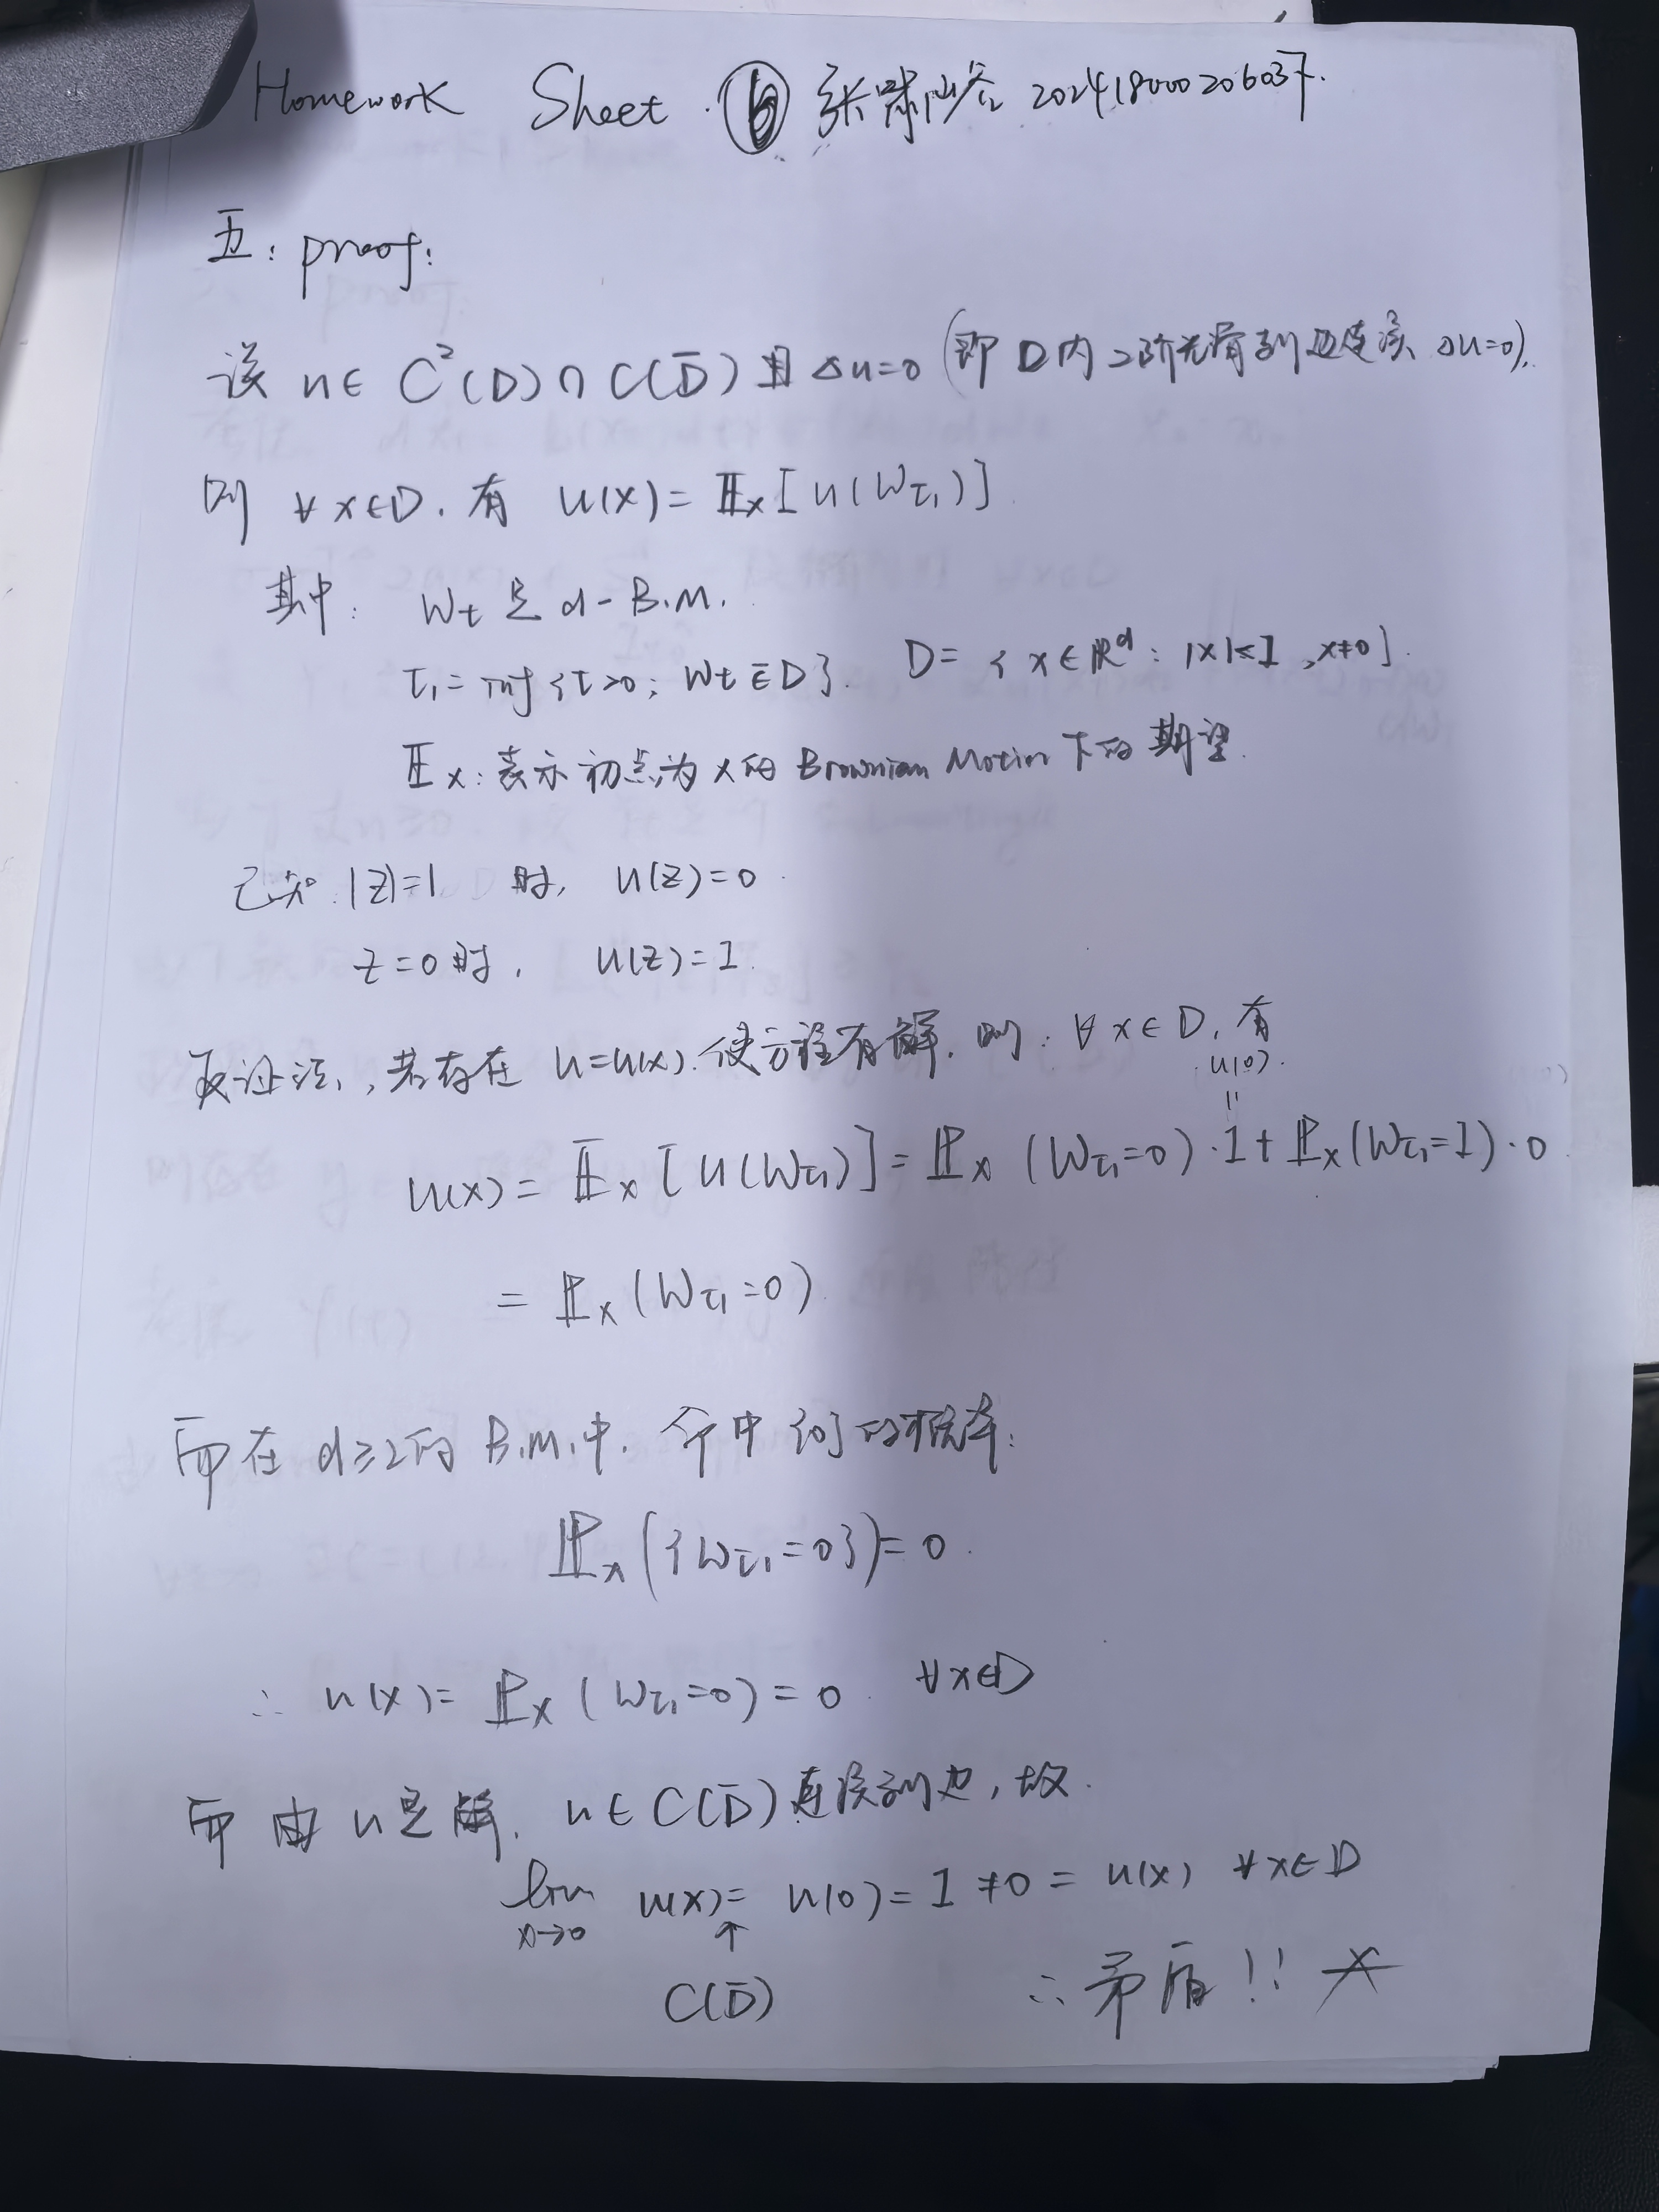 Homework Sheet ⑥ 张啸 202418000206037.
五: proof:
设 u∈ C²(D)∩C(D̄) 且 Δu=0 (即 D内二阶光滑到边连续、Δu=0).
则 ∀x∈D. 有 u(x)= 𝔼x[u(Wτ₁)]
其中: Wt 是 d-B.M.
τ₁=inf{t>0; Wt∉D}. D={x∈ℝᵈ: |x|<1, x≠0}.
𝔼x: 表示初点为x的 Brownian Motion 下的期望.
已知 |z|=1 时, u(z)=0
z=0时, u(z)=1.
反证法, 若存在 u=u(x). 使方程有解. 则: ∀x∈D. 有
u(0).
=
u(x)= 𝔼x[u(Wτ₁)]= ℙx(Wτ₁=0)·1+ℙx(Wτ₁=1)·0
= ℙx(Wτ₁=0)
而在 d≥2的 B.M.中. 命中{0}的概率:
ℙx({Wτ₁=0})=0.
∴ u(x)= ℙx(Wτ₁=0)=0. ∀x∈D
而由 u是解. u∈C(D̄) 连续到边, 故.
lim u(x)= u(0)=1≠0=u(x) ∀x∈D
x→0 ↑
C(D̄)
∴ 矛盾!!